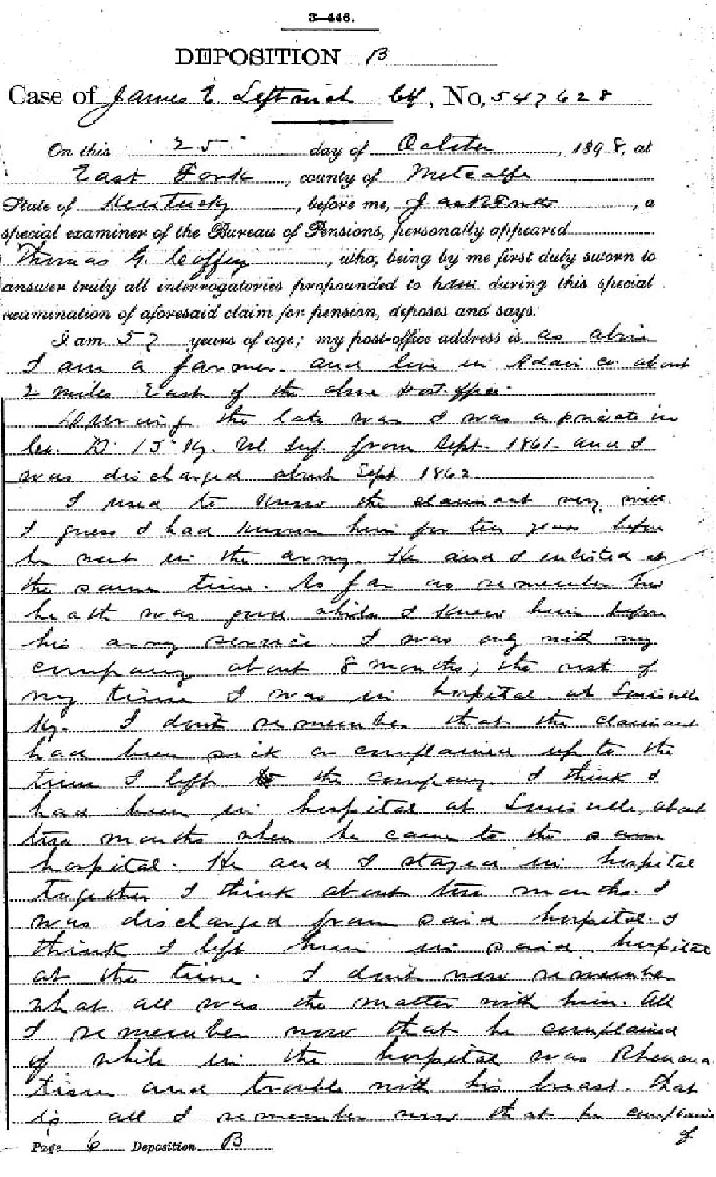 3—446.
DEPOSITION B
Case of James E. Leftwich Ctf, No. 547628
On this 25 day of October, 1898, at
East Fork, county of Metcalfe
State of Kentucky, before me, a
special examiner of the Bureau of Pensions, personally appeared
Thomas G. Coffey, who, being by me first duly sworn to
answer truly all interrogatories propounded to him during this special
examination of aforesaid claim for pension, deposes and says:
I am 57 years of age; my post-office address is as above
I am a farmer and live in Adair co about
2 miles East of the above post office.
During the late war I was a private in
Co. D. 13" Ky. Vol Inf. from Sept. 1861 and I
was discharged about Sept 1862
I used to know the claimant very well
I guess I had known him for ten years before
he went in the army. He and I enlisted at
the same time. So far as remember his
health was good while I knew him before
his army service. I was only with my
company about 8 months; the rest of
my time I was in hospital at Louisville
Ky. I don't remember that the claimant
had been sick or complained up to the
time I left the company. I think I
had been in hospital at Louisville, about
two months when he came to the same
hospital. He and I stayed in hospital
together I think about two months. I
was discharged from said hospital. I
think I left him in said hospital
at the time. I don't now remember
what all was the matter with him. All
I remember now that he complained
of while in the hospital was Rheuma
tism and trouble with his breast. That
is all I remember now that he complained
of
Page 6 Deposition B